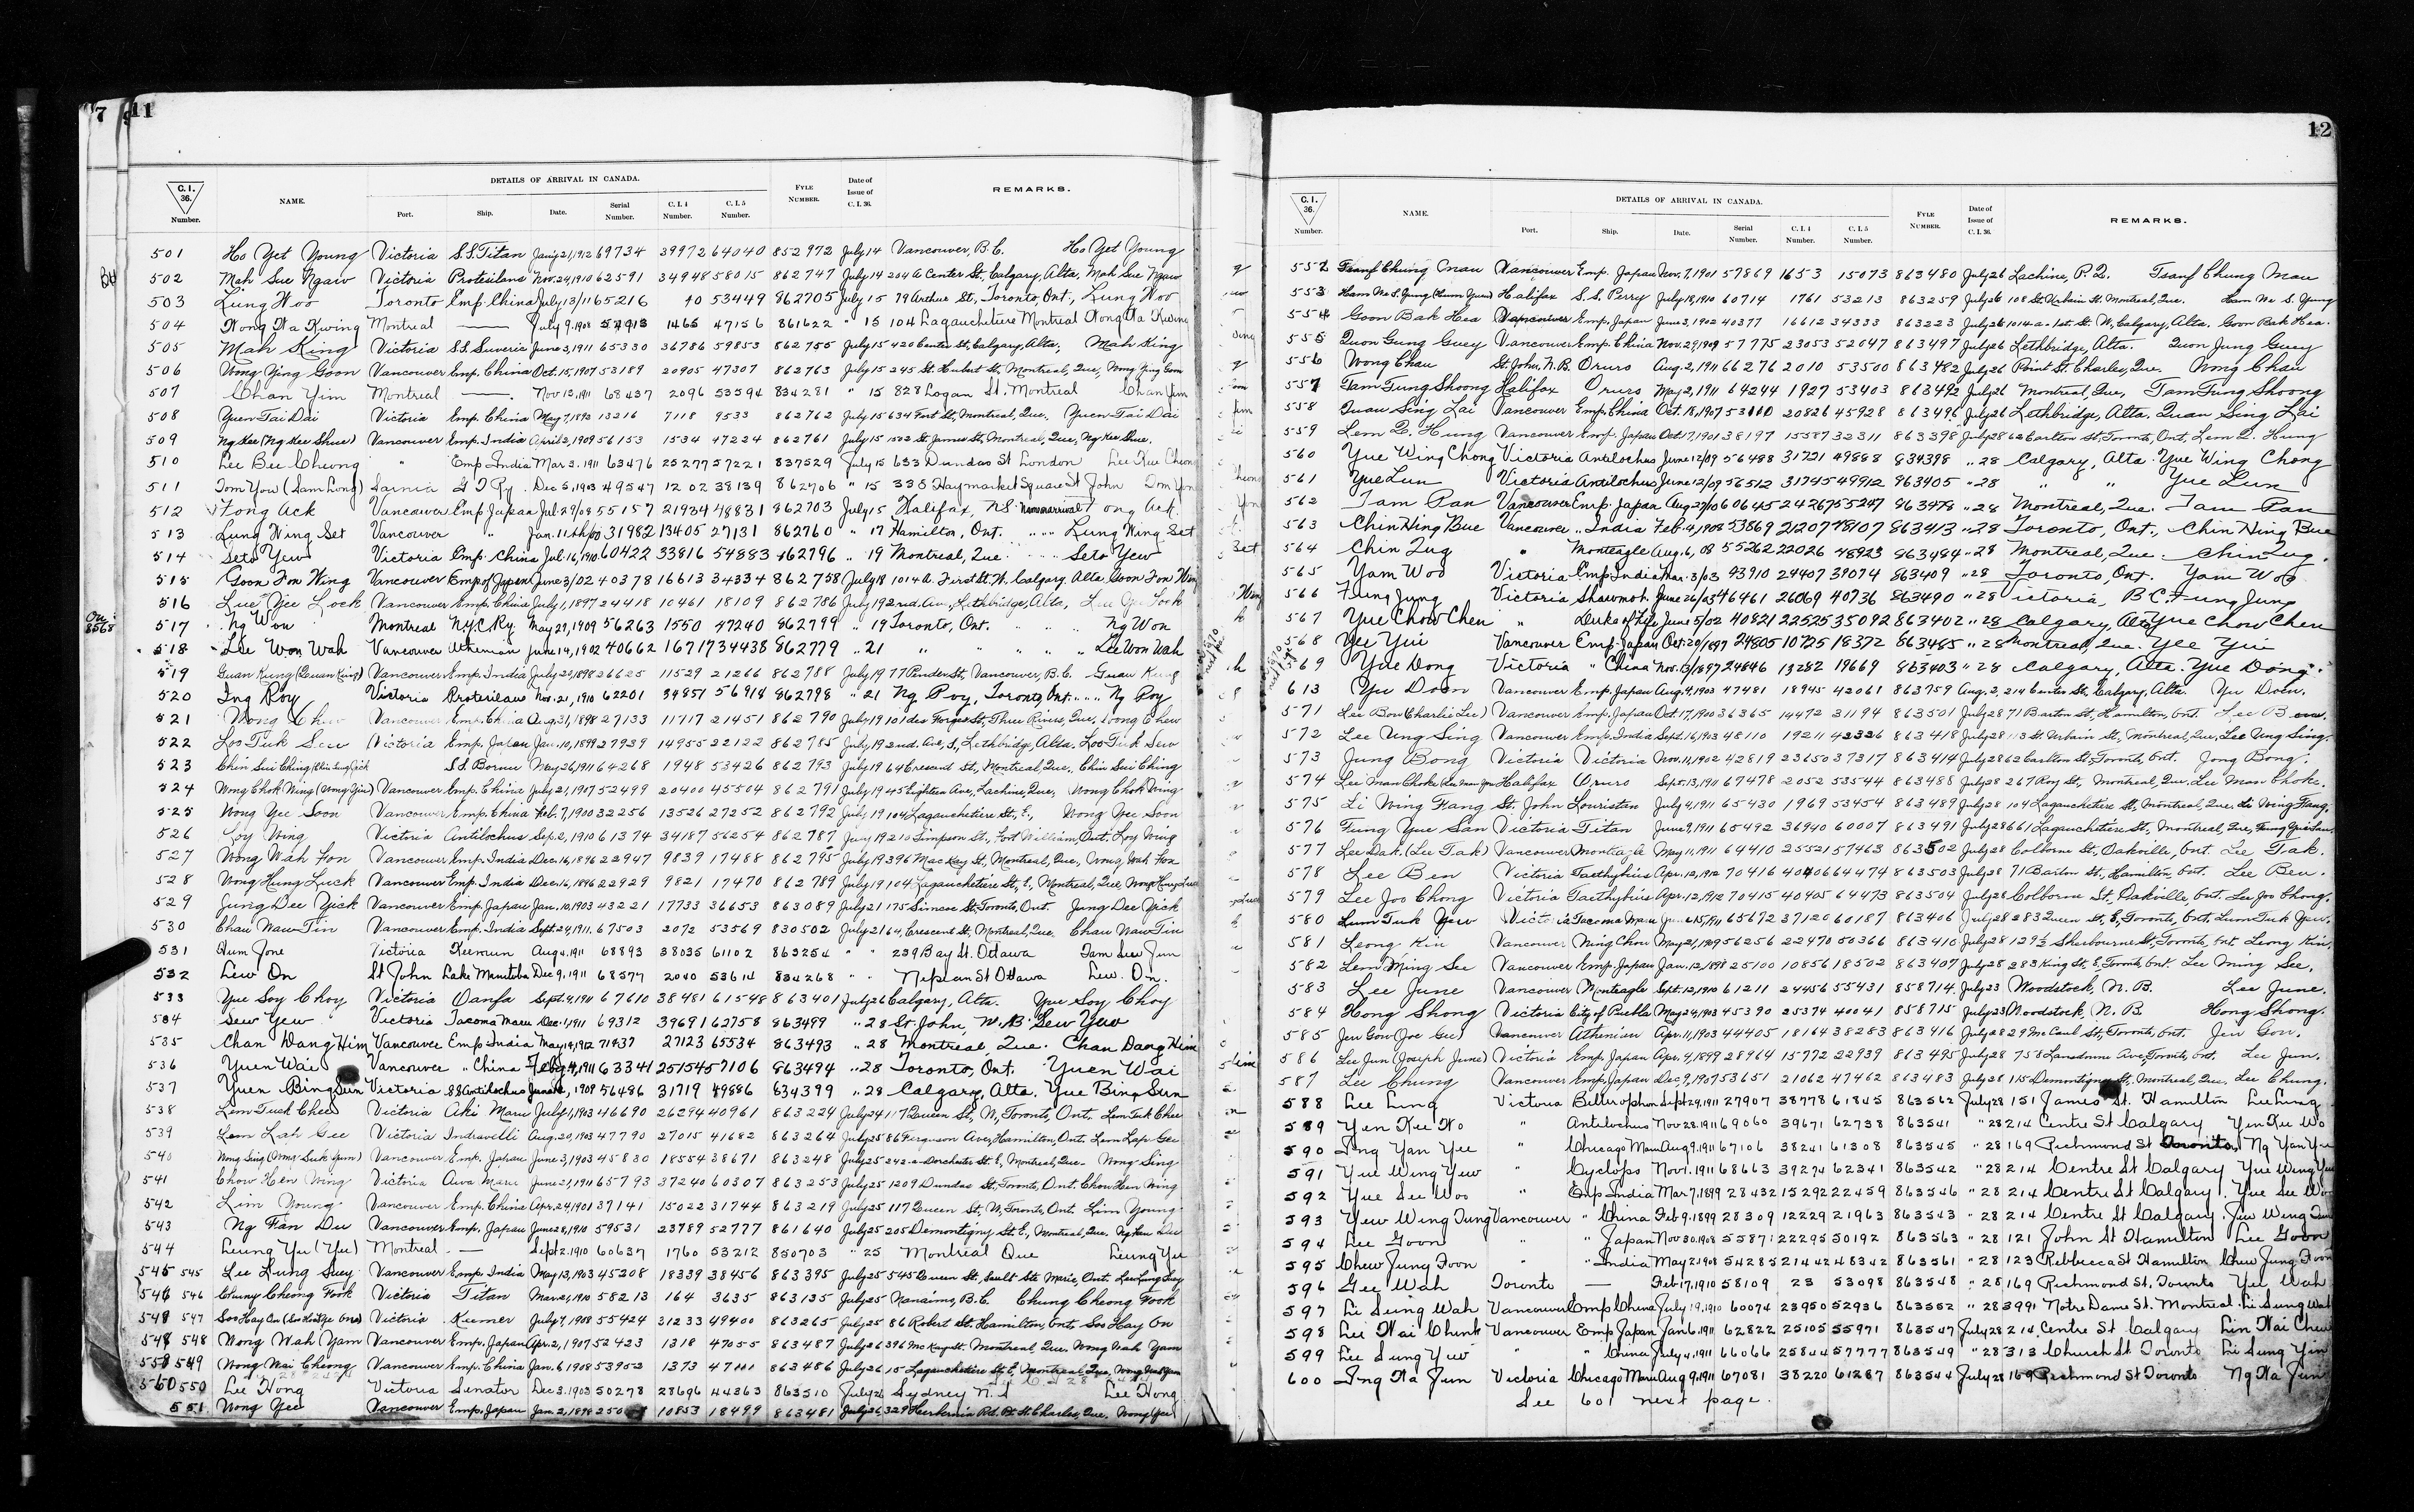 7 11
C. I. 36. Number. NAME. DETAILS OF ARRIVAL IN CANADA. Port. Ship. Date. Serial Number. C. I. 4 Number. C. I. 5 Number. FYLE NUMBER. Date of Issue of C. I. 36. REMARKS.
501 Ho Yet Young Victoria S.S. Titan Jan 21, 1912 69734 39972 64040 852972 July 14 Vancouver, B.C. Ho Yet Young
502 Mah Sue Ngaw Victoria Protesilaus Nov. 24, 1910 62591 34948 58015 862747 July 14 204 A Center St. Calgary, Alta, Mah Sue Ngaw
503 Lung Woo Toronto Emp. China July 13/11 65216 40 53449 862705 July 15 79 Arthur St., Toronto, Ont., Lung Woo
504 Wong Wa Kwing Montreal — July 9, 1908 1465 47156 861622 " 15 104 Lagauchetiere Montreal Wong Wa Kwing
505 Mah King Victoria S.S. Suveric June 3, 1911 65330 36786 59853 862755 July 15 420 Center St, Calgary, Alta., Mah King
506 Wong Ying Goon Vancouver Emp. China Oct. 15, 1907 53189 20905 47307 862763 July 15 245 St. Hubert St, Montreal, Que, Wong Ying Goon
507 Chan Yim Montreal —. Nov 13, 1911 68437 2096 53594 834281 " 15 828 Logan St. Montreal Chan Yim
508 Yuen Tai Dai Victoria Emp. China May 7, 1893 13216 7118 9533 862762 July 15 634 Fort St, Montreal, Que. Yuen Tai Dai
509 Ng Kee (Ng Kee Shue) Vancouver Emp. India April 2, 1909 56153 1534 47224 862761 July 15 1502 St. James St, Montreal, Que, Ng Kee Shue.
510 Lee Bee Cheong " Emp India Mar 3. 1911 63476 25277 57221 837529 July 15 633 Dundas St London Lee Kee Cheong
511 Tom You (Sam Long) Sarnia G T Ry. Dec 5, 1903 49547 1202 38139 862706 " 15 335 Haymarket Square St John Tom You
512 Fong Ack Vancouver Emp Japan Jul. 29/08 55157 21934 48831 862703 July 15 Halifax, N.S. Fong Ack.
513 Lung Wing Set Vancouver " Jan. 11th/00 31982 13405 27131 862760 " 17 Hamilton, Ont. " " " Lung Wing Set
514 Seto Yew Victoria Emp. China Jul. 16, 1910 60422 33816 54883 862796 " 19 Montreal, Que. Seto Yew
515 Goon Fon Wing Vancouver Emp of Japan June 3/02 40378 16613 34334 862758 July 18 1014 a. First St. W. Calgary Alta Goon Fon Wing
516 Lue Yee Lock Vancouver Emp. China July 1, 1897 24418 10461 18109 862786 July 19 2nd. Ave., Lethbridge, Alta,
517 Ng Won Montreal N.Y.C. Ry. May 29, 1909 56263 1550 47240 862799 " 19 Toronto, Ont. " " Ng Won
518 Lee Won Wah Vancouver Athenian June 14, 1902 40662 16717 34438 862779 " 21 " " " " Lee Won Wah
519 Guan Kung (Quan King) Vancouver Emp. India July 20, 1898 26625 11529 21266 862788 July 19 77 Pender St, Vancouver, B.C. Guan Kung
520 Ing Roy Victoria Protesilaus Nov. 21, 1910 62201 34851 56914 862798 " 21 Ng Roy, Toronto, Ont. " " Ng Roy
521 Wong Chew Vancouver Emp. China Aug. 31, 1898 27133 11717 21451 862790 July 19 101 des Forges St, Three Rivers, Que, Wong Chew
522 Loo Tuk Sew Victoria Emp. Japan Jan. 10, 1899 27939 14955 22122 862785 July 19 2nd. Ave, S, Lethbridge, Alta. Loo Tuk Sew
523 Chin Sui Ching S.S. Bornu May 26, 1911 64268 1948 53426 862793 July 19 64 Crescent St., Montreal, Que., Chin Sui Ching
524 Wong Chok Wing (Wong Yin) Vancouver Emp. China July 21, 1907 52499 20400 45504 862791 July 19 45 Eighteen Ave, Lachine, Que, Wong Chok Wing
525 Wong Yee Soon Vancouver Emp. China Feb. 7, 1900 32256 13526 27252 862792 July 19 104 Lagauchetiere St., E., Wong Yee Soon
526 Loy Wing Victoria Antilochus Sep. 2, 1910 61374 34187 56254 862787 July 19 210 Simpson St., Fort William, Ont, Loy Wing
527 Wong Wah Fon Vancouver Emp. India Dec. 16, 1896 22947 9839 17488 862795 July 19 396 MacKay St, Montreal, Que., Wong Wah Fon
528 Wong Hung Luck Vancouver Emp. India Dec. 16, 1896 22929 9821 17470 862789 July 19 104 Lagauchetiere St, E, Montreal, Que, Wong Hung Luck
529 Jung Dee Yick Vancouver Emp. Japan Jan. 10, 1903 43221 17733 36653 863089 July 21 175 Simcoe St, Toronto, Ont. Jung Dee Yick
530 Chau Naw Tin Vancouver Emp. India Sept. 24, 1911. 67503 2072 53569 830502 July 21 64, Crescent St, Montreal, Que. Chau Naw Tin
531 Hum Jone Victoria Keemun Aug 4. 1911 68893 38035 61102 863254 " " 239 Bay St. Ottawa Tam Sew Jun
532 Lew On St John Lake Manitoba Dec 9, 1911 68577 2040 53614 834268 " " Nepean St Ottawa Lew. On.
533 Yue Soy Choy Victoria Oanfa Sept. 4, 1911 67610 38481 61548 863401 July 26 Calgary, Alta. Yue Soy Choy
534 Sew Yew Victoria Tacoma Maru Dec. 1, 1911 69312 39691 62758 863499 " 28 St. John, N.B. Sew Yew
535 Chan Dang Him Vancouver Emp India May 14, 1912 71437 27123 65534 863493 " 28 Montreal, Que. Chan Dang Him
536 Yuen Wai Vancouver " China 63341 25154 57106 863494 " 28 Toronto, Ont. Yuen Wai
537 Yuen Bing Sun Victoria SS Antilochus 1909 56486 31719 49886 634399 " 28 Calgary, Alta. Yue Bing Sun
538 Lem Tuck Chee Victoria Aki Maru July 1, 1903 46690 26294 40961 863224 July 24 117 Queen St, W, Toronto, Ont. Lem Tuk Chee
539 Lem Lap Gee Victoria Indravelli Aug. 20, 1903 47790 27015 41682 863264 July 25 86 Ferguson Ave, Hamilton, Ont. Lem Lap Gee
540 Wong Sing Vancouver Emp. Japan June 3, 1903 45830 18554 38671 863248 July 25 242-a-Dorchester St. E, Montreal, Que. Wong Sing
541 Chow Hen Wing Victoria Awa Maru June 21, 1911 65793 37240 60307 863253 July 25 1209 Dundas St, Toronto, Ont. Chow Hen Wing
542 Lim Young Vancouver Emp. China Apr. 24, 1901 37141 15022 31744 863219 July 25 117 Queen St, W, Toronto, Ont Lim Young
543 Ng Fan Du Vancouver Emp. Japan June 28, 1910 59531 23789 52777 861640 July 25 205 Demontigny St. E, Montreal, Que.
544 Leung Yu (Yee) Montreal — Sept 2. 1910 60637 1760 53212 850703 " 25 Montreal Que Leung Yu
545 545 Lee Lung Suey Vancouver Emp. India May 13, 1903 45208 18339 38456 863395 July 25 545 Queen St, Sault Ste Marie, Ont. Lee Lung Suey
546 546 Chung Cheong Fook Victoria Titan Mar 21, 1910 58213 164 3635 863135 July 25 Nanaimo, B.C. Chung Cheong Fook
547 Soo Hay On Victoria Kumer July 7, 1908 55424 31233 49400 863265 July 25 86 Robert St. Hamilton, Ont. Soo Hay On
548 Wong Wah Yam Vancouver Emp. Japan Apr. 2, 1907 52423 1318 47055 863487 July 26 396 McKay St. Montreal Que. Wong Wah Yam
549 Wong Wai Cheong Vancouver Emp. China Jan. 6 1908 53952 1373 863486 July 26 15 Lagauchetiere St. E, Montreal, Que,
550 Lee Hong Victoria Senator Dec 3. 1903 50278 28696 44363 863510 July 26 Sydney N.S Lee Hong
551 Wong Yee Vancouver Emp. Japan Jan. 2, 1898 10853 18499 863481 July 26 329 St. Charles, Que. Wong Yee
12
C. I. 36. Number. NAME. DETAILS OF ARRIVAL IN CANADA. Port. Ship. Date. Serial Number. C. I. 4 Number. C. I. 5 Number. FYLE NUMBER. Date of Issue of C. I. 36. REMARKS.
552 Tsanf Chung Mau Vancouver Emp. Japan Nov. 7, 1901 57869 1653 15073 863480 July 26 Lachine, P.Q. Tsanf Chung Mau
553 Ham Me S. Yung Halifax S.S. Perry July 18, 1910 60714 1761 53213 863259 July 26 108 St. Urbain St. Montreal, Que. Ham Me S. Yung
554 Goon Bak Hea Vancouver Emp. Japan June 3, 1902 40377 16612 34333 863223 July 26 1014-a-1st. St. W, Calgary, Alta. Goon Bak Hea.
555 Quon Gung Guey Vancouver Emp. China Nov. 29, 1909 57775 23053 52047 863497 July 26 Lethbridge, Alta. Quon Jung Guey
556 Wong Chau St. John, N.B. Oruro Aug. 2, 1911 66276 2010 53500 863482 July 26 Point St. Charles, Que. Wong Chau
557 Tam Tung Shoong Halifax Oruro May 2, 1911 64244 1927 53403 863492 July 26 Montreal, Que, Tam Tung Shoong
558 Quan Sing Lai Vancouver Emp. China Oct. 18, 1907 53110 20826 45928 863496 July 26 Lethbridge, Alta. Quan Sing Lai
559 Lem Q. Hung Vancouver Emp. Japan Oct. 17, 1901 38197 15587 32311 863398 July 28 62 Carlton St, Toronto, Ont, Lem Q. Hung
560 Yue Wing Chong Victoria Antilochus June 12/09 56488 31721 49888 834398 " 28 Calgary, Alta. Yue Wing Chong
561 Yue Lun Victoria Antilochus June 12/09 56512 31745 49912 863405 " 28 " " Yue Lun
562 Tam Pan Vancouver Emp. Japan Aug 29/10 60645 24267 55247 863478 " 28 Montreal, Que. Tam Pan
563 Chin Hing Bue Vancouver " India Feb. 4, 1908 53869 21207 48107 863413 " 28 Toronto, Ont., Chin Hing Bue
564 Chin Zug " Monteagle Aug. 6, 08 55262 22026 48923 863484 " 28 Montreal, Que. Chin Zug.
565 Yam Woo Victoria Emp India Mar. 3/03 43910 24407 39074 863409 " 28 Toronto, Ont. Yam Woo
566 Fung Jung Victoria Shawmot June 26/03 46461 26069 40736 863490 " 28 Victoria, B.C. Fung Jung
567 Yue Chow Chen " Duke of Fife June 5/02 40821 22525 35092 863402 " 28 Calgary, Alta Yue Chow Chen
568 Yee Yui Vancouver Emp. Japan Oct. 20/1897 24805 10725 18372 863485 " 28 Montreal, Que. Yee Yui
569 Yue Dong Victoria " China Nov. 13/1897 24846 13282 19669 863403 " 28 Calgary, Alta. Yue Dong.
613 Yu Doon Vancouver Emp. Japan Aug. 4, 1903 47481 18945 42061 863759 Aug. 2, 214 Center St, Calgary, Alta. Yu Doon.
571 Lee Bow (Charlie Lee) Vancouver Emp. Japan Oct. 17, 1900 36365 14472 31194 863501 July 28 71 Barton St, Hamilton, Ont. Lee Bow.
572 Lee Ung Sing Vancouver Emp. India Sept. 16, 1903 48110 19211 42326 863418 July 28 113 St. Urbain St, Montreal, Que, Lee Ung Sing.
573 Jung Bong Victoria Victoria Nov. 14, 1902 42819 23650 37317 863414 July 28 62 Carlton St, Toronto, Ont. Jong Bong.
574 Lee Man Choke Halifax Oruro Sept. 13, 1911 67478 2052 53544 863488 July 28 267 Roy St, Montreal, Que, Lee Man Choke.
575 Li Wing Fang St. John Louristan July 4, 1911 65430 1969 53454 863489 July 28 104 Lagauchetiere St, Montreal, Que. Li Wing Fang.
576 Fung Yue San Victoria Titan June 9, 1911 65492 36940 60007 863491 July 28 661 Lagauchetiere St., Montreal, Que, Fung Yue San.
577 Lee Dak. (Lee Tak) Vancouver Monteagle May 11, 1911 64410 25521 57463 863502 July 28 Colborne St, Oakville, Ont. Lee Tak.
578 Lee Ben Victoria Taethybius Apr. 12, 1912 70416 40406 64474 863503 July 28 71 Barton St, Hamilton, Ont. Lee Ben.
579 Lee Joo Chong Victoria Taethybius Apr. 12, 1912 70415 40405 64473 863504 July 28 Colborne St, Oakville, Ont. Lee Joo Chong.
580 Lum Tuck Yew Victoria Tacoma Maru June 15, 1911 65672 37120 60187 863406 July 28 283 Queen St, E, Toronto, Ont, Lum Tuck Yew.
581 Leong Kin Vancouver Ning Chow May 21, 1909 56256 22470 50366 863410 July 28 129½ Sherbourne St, Toronto, Ont Leong Kin.
582 Lem Ming See Vancouver Emp. Japan Jan. 12, 1898 25100 10856 18502 863407 July 28 283 King St, E, Toronto, Ont. Lee Ming See.
583 Lee June Vancouver Monteagle Sept. 12, 1910 61211 24456 55431 858714 July 23 Woodstock, N. B. Lee June.
584 Hong Shong Victoria City of Puebla May 24, 1903 45390 25374 40041 858715 July 23 Woodstock, N. B. Hong Shong.
585 Jew Gow (Joe Gee) Vancouver Athenian Apr. 11, 1903 44405 18164 38283 863416 July 28 29 McCaul St, Toronto, Ont. Jew Gow.
586 Lee Jun (Joseph June) Victoria Emp. Japan Apr. 4, 1899 28964 15772 22939 863495 July 28 758 Lansdowne Ave, Toronto, Ont. Lee Jun.
587 Lee Chung Vancouver Emp. Japan Dec. 9, 1907 53651 21062 47462 863483 July 28 115 Demontigny St, Montreal, Que. Lee Chung.
588 Lee Ling Victoria Bellerophon Sept 29, 1911 27907 38778 61845 863562 July 28 151 James St. Hamilton Lee Ling
589 Yen Kee Wo " Antilochus Nov 28, 1911 69060 39671 62738 863541 " 28 214 Centre St Calgary Yen Kee Wo
590 Ing Yan Yee " Chicago Maru Aug 9, 1911 67106 38241 61308 863545 " 28 169 Richmond St Toronto, Ng Yan Yee
591 Yue Wing Yew " Cyclops Nov 1. 1911 68663 39274 62341 863542 " 28 214 Centre St Calgary Yue Wing Yew
592 Yue See Woo " Emp India Mar 7, 1899 28432 15292 22459 863546 " 28 214 Centre St Calgary. Yue See Woo
593 Yew Wing Tung Vancouver " China Feb 9. 1899 28309 12229 21963 863543 " 28 214 Centre St Calgary. Yew Wing Tung
594 Lee Goon " " Japan Nov 30, 1908 55871 22295 50192 863563 " 28 121 John St Hamilton Lee Goon
595 Chew Jung Foon " " India May 2 1908 54285 21442 48342 863561 " 28 123 Rebbecca St Hamilton Chew Jung Foon
596 Gee Wah Toronto — Feb 17, 1910 58109 23 53098 863548 " 28 169 Richmond St. Toronto Yee Wah
597 Li Sung Wah Vancouver Emp China July 19, 1910 60074 23950 52936 863552 " 28 3991 Notre Dame St. Montreal. Li Sung Wah
598 Lee Wai Chunk Vancouver Emp Japan Jan 6. 1911 62822 25105 55971 863547 July 28 214 Centre St Calgary Lin Wai Chew
599 Lee Sung Yew " " China July 4, 1911 66066 25844 57777 863549 " 28 313 Church St. Toronto Li Sung Yin
600 Ing Wa Jun Victoria Chicago Maru Aug 9, 1911 67081 38220 61287 863544 July 28 169 Richmond St Toronto Ng Wa Jun
See 601 next page.